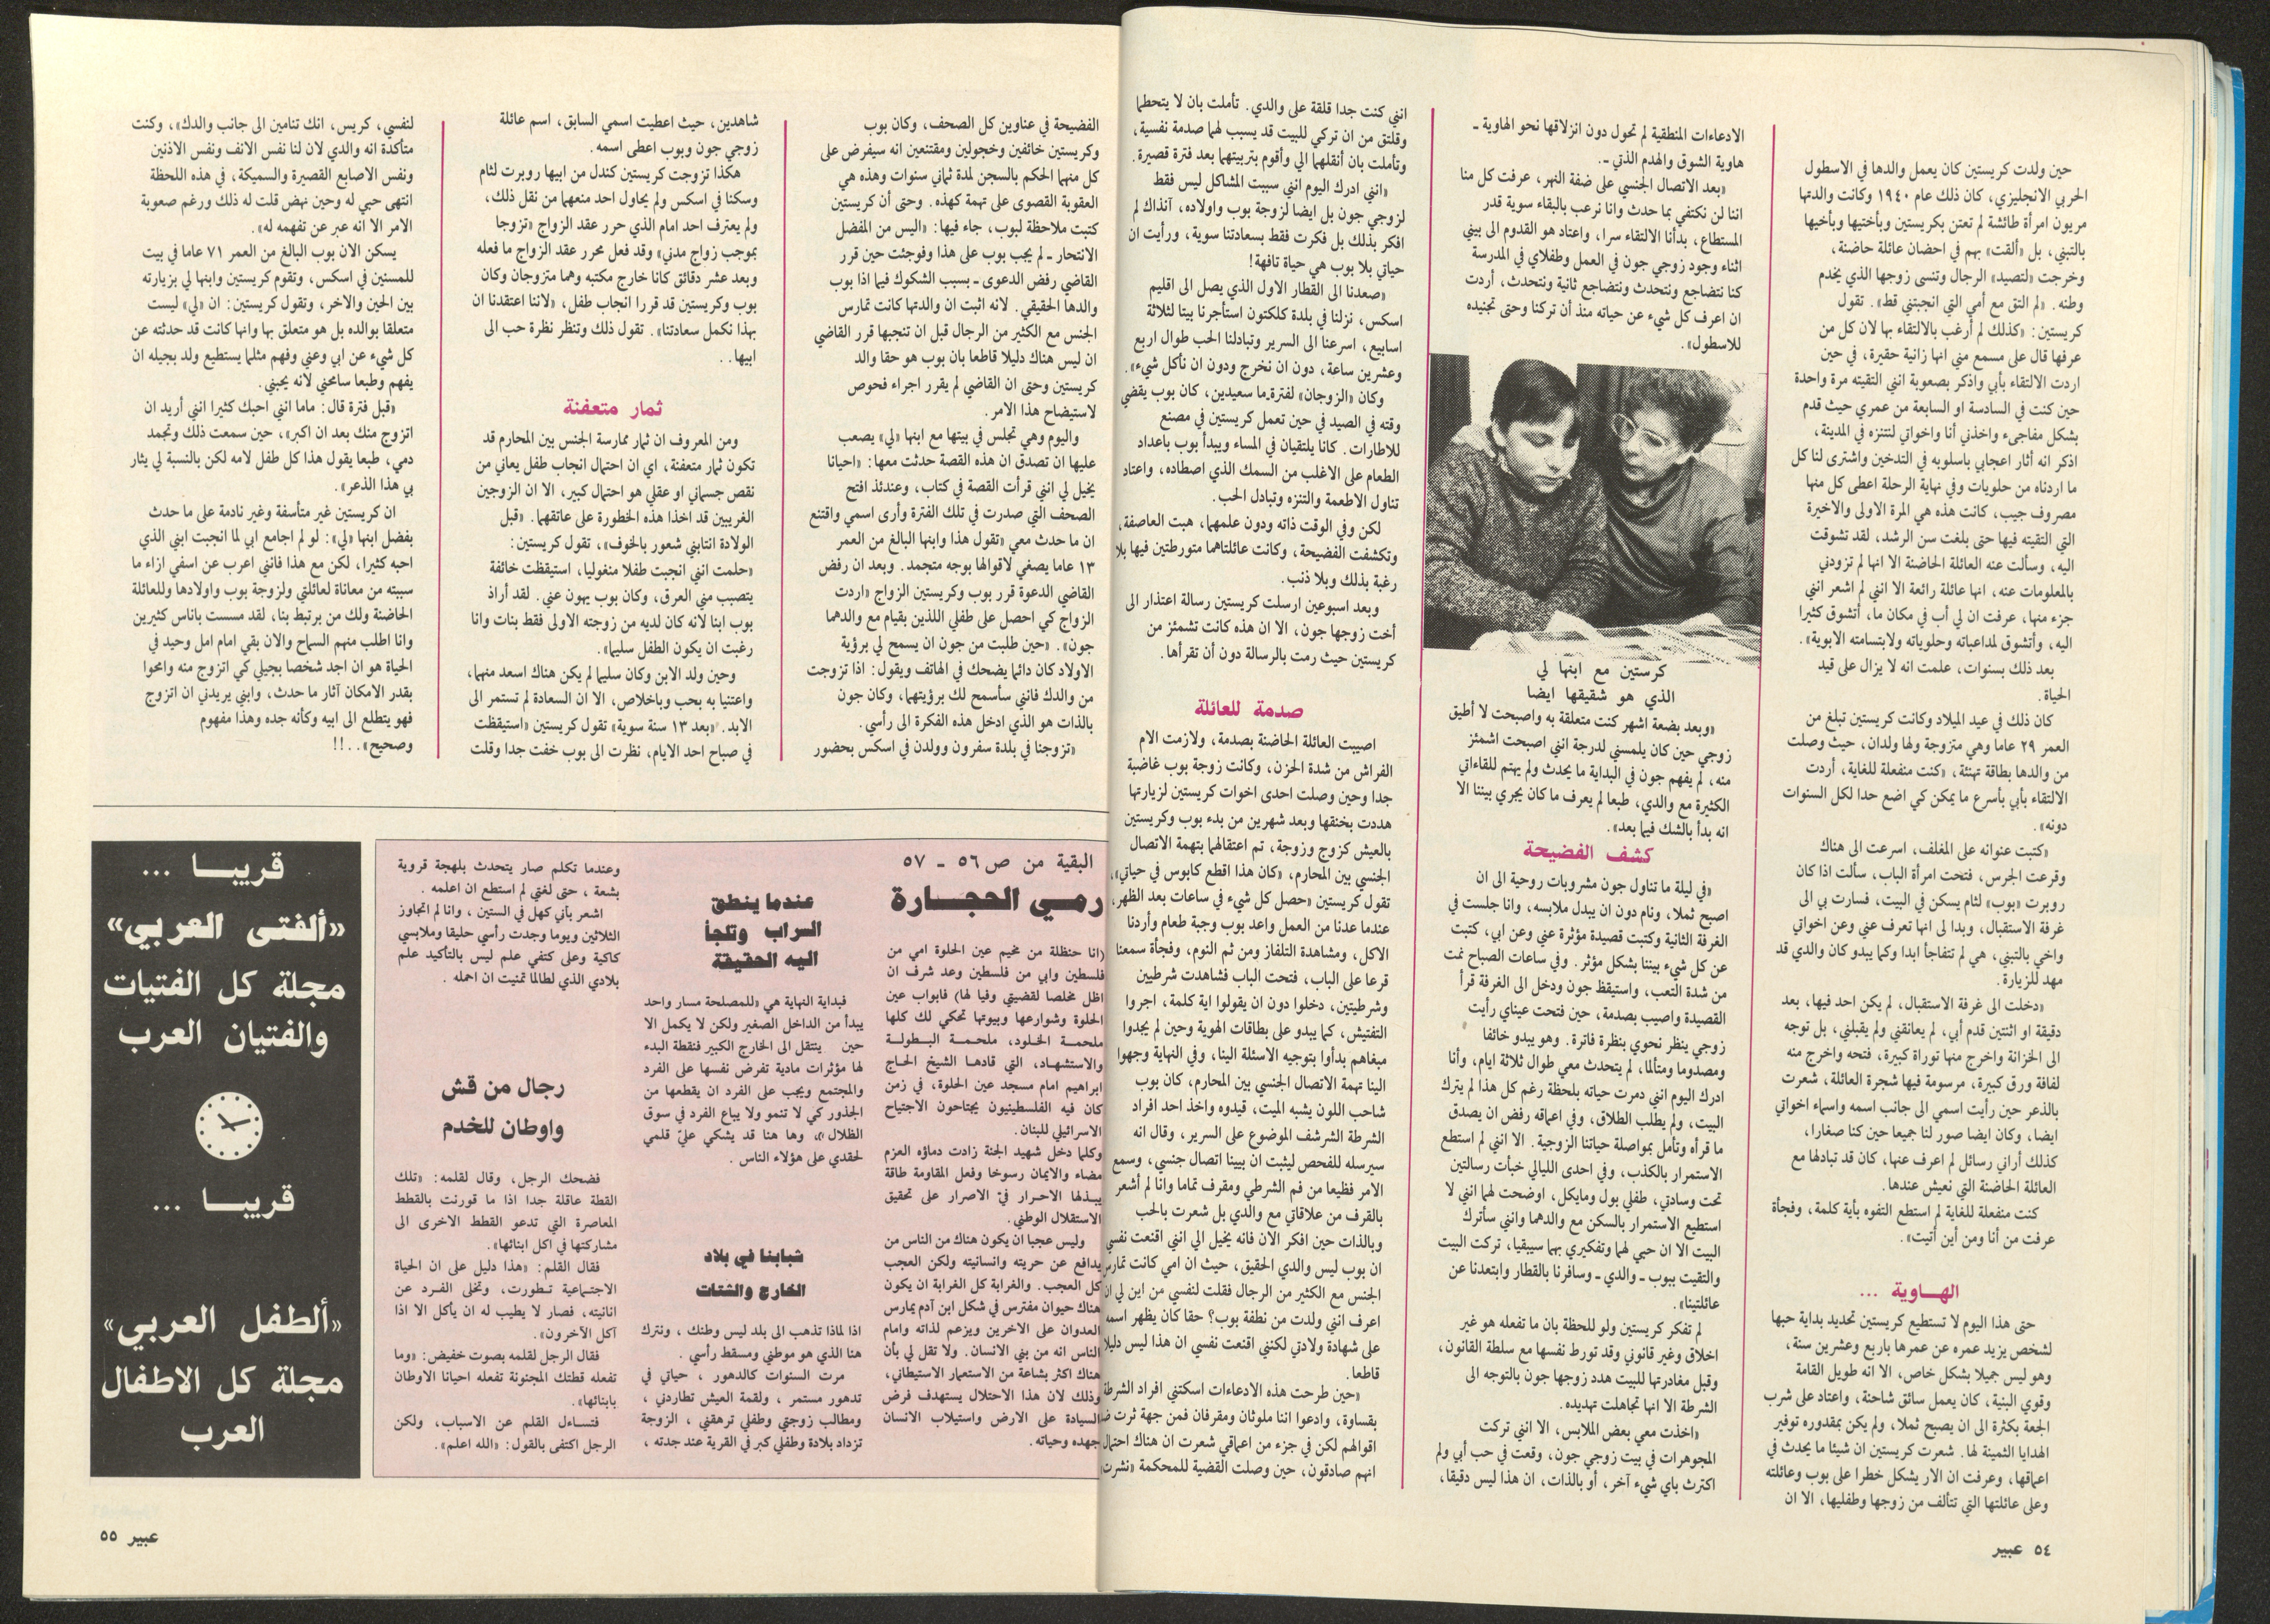 حين ولدت كريستين كان يعمل والدها في الاسطول
الحربي الانجليزي، كان ذلك عام ١٩٤٠ وكانت والدتها
مريون امرأة طائشة لم تعتن بكريستين وبأختيها وبأخيها
بالتبني، بل «ألقت» بهم في احضان عائلة حاضنة،
وخرجت «لتصيد» الرجال وتنسى زوجها الذي يخدم
وطنه. «لم التق مع أمي التي انجبتني قط». تقول
كريستين: «كذلك لم أرغب بالالتقاء بها لان كل من
عرفها قال على مسمع مني انها زانية حقيرة، في حين
اردت الالتقاء بأبي واذكر بصعوبة انني التقيته مرة واحدة
حين كنت في السادسة او السابعة من عمري حيث قدم
بشكل مفاجىء واخذني أنا واخواتي لنتنزه في المدينة،
اذكر انه أثار اعجابي باسلوبه في التدخين واشترى لنا كل
ما اردناه من حلويات وفي نهاية الرحلة اعطى كل منها
مصروف جيب، كانت هذه هي المرة الاولى والاخيرة
التي التقيته فيها حتى بلغت سن الرشد، لقد تشوقت
اليه، وسألت عنه العائلة الحاضنة الا انها لم تزودني
بالمعلومات عنه، انها عائلة رائعة الا انني لم اشعر انني
جزء منها، عرفت ان لي أب في مكان ما، أتشوق كثيرا
اليه، وأتشوق لمداعباته وحلوياته ولابتسامته الابوية».
بعد ذلك بسنوات، علمت انه لا يزال على قيد
الحياة.
كان ذلك في عيد الميلاد وكانت كريستين تبلغ من
العمر ٢٩ عاما وهي متزوجة ولها ولدان، حيث وصلت
من والدها بطاقة تهنئة، «كنت منفعلة للغاية، أردت
الالتقاء بأبي بأسرع ما يمكن كي اضع حدا لكل السنوات
دونه».
«كتبت عنوانه على المغلف، اسرعت الى هناك
وقرعت الجرس، فتحت امرأة الباب، سألت اذا كان
روبرت «بوب» لثام يسكن في البيت، فسارت بي الى
غرفة الاستقبال، وبدا لى انها تعرف عني وعن اخواتي
واخي بالتبني، هي لم تتفاجأ ابدا وكما يبدو كان والدي قد
مهد للزيارة.
«دخلت الى غرفة الاستقبال، لم يكن احد فيها، بعد
دقيقة او اثنتين قدم أبي، لم يعانقني ولم يقبلني، بل توجه
الى الخزانة واخرج منها توراة كبيرة، فتحه واخرج منه
لفافة ورق كبيرة، مرسومة فيها شجرة العائلة، شعرت
بالذعر حين رأيت اسمي الى جانب اسمه واسماء اخواتي
ايضا، وكان ايضا صور لنا جميعا حين كنا صغارا،
كذلك أراني رسائل لم اعرف عنها، كان قد تبادلها مع
العائلة الحاضنة التي نعيش عندها.
كنت منفعلة للغاية لم استطع التفوه بأية كلمة، وفجأة
عرفت من أنا ومن أين أتيت».
الهـاوية ...
حتى هذا اليوم لا تستطيع كريستين تحديد بداية حبها
لشخص يزيد عمره عن عمرها باربع وعشرين سنة،
وهو ليس جميلا بشكل خاص، الا انه طويل القامة
وقوي البنية، كان يعمل سائق شاحنة، واعتاد على شرب
الجعة بكثرة الى ان يصبح ثملا، ولم يكن بمقدوره توفير
الهدايا الثمينة لها. شعرت كريستين ان شيئا ما يحدث في
اعماقها، وعرفت ان الار يشكل خطرا على بوب وعائلته
وعلى عائلتها التي تتألف من زوجها وطفليها، الا ان
الادعاءات المنطقية لم تحول دون انزلاقها نحو الهاوية -
هاوية الشوق والهدم الذاتي -.
«بعد الاتصال الجنسي على ضفة النهر، عرفت كل منا
اننا لن نكتفي بما حدث وانا نرغب بالبقاء سوية قدر
المستطاع، بدأنا الالتقاء سرا، واعتاد هو القدوم الى بيتي
اثناء وجود زوجي جون في العمل وطفلاي في المدرسة
كنا نتضاجع ونتحدث ونتضاجع ثانية ونتحدث، أردت
ان اعرف كل شيء عن حياته منذ أن تركنا وحتى تجنيده
للاسطول».
كرستين مع ابنها لي
الذي هو شقيقها ايضا
«وبعد بضعة اشهر كنت متعلقة به واصبحت لا أطيق
زوجي حين كان يلمسني لدرجة انني اصبحت اشمئز
منه، لم يفهم جون في البداية ما يحدث ولم يهتم للقاءاتي
الكثيرة مع والدي، طبعا لم يعرف ما كان يجري بيننا الا
انه بدأ بالشك فيما بعد».
كشف الفضيحة
«في ليلة ما تناول جون مشروبات روحية الى ان
اصبح ثملا، ونام دون ان يبدل ملابسه، وانا جلست في
الغرفة الثانية وكتبت قصيدة مؤثرة عني وعن ابي، كتبت
عن كل شيء بيننا بشكل مؤثر. وفي ساعات الصباح نمت
من شدة التعب، واستيقظ جون ودخل الى الغرفة قرأ
القصيدة واصيب بصدمة، حين فتحت عيناي رأيت
زوجي ينظر نحوي بنظرة فاترة. وهو يبدو خائفا
ومصدوما ومتألما، لم يتحدث معي طوال ثلاثة ايام، وأنا
ادرك اليوم انني دمرت حياته بلحظة رغم كل هذا لم يترك
البيت، ولم يطلب الطلاق، وفي اعماقه رفض ان يصدق
ما قرأه وتأمل بمواصلة حياتنا الزوجية. الا انني لم استطع
الاستمرار بالكذب، وفي احدى الليالي خبأت رسالتين
تحت وسادتي، طفلي بول ومايكل، اوضحت لهما انني لا
استطيع الاستمرار بالسكن مع والدهما وانني سأترك
البيت الا ان حبي لهما وتفكيري بهما سيبقيا، تركت البيت
والتقيت ببوب - والدي - وسافرنا بالقطار وابتعدنا عن
عائلتينا».
لم تفكر كريستين ولو للحظة بان ما تفعله هو غير
اخلاق وغير قانوني وقد تورط نفسها مع سلطة القانون،
وقبل مغادرتها للبيت هدد زوجها جون بالتوجه الى
الشرطة الا انها تجاهلت تهديده.
«اخذت معي بعض الملابس، الا انني تركت
المجوهرات في بيت زوجي جون، وقعت في حب أبي ولم
اكترث باي شيء آخر، أو بالذات، ان هذا ليس دقيقا،
انني كنت جدا قلقة على والدي. تأملت بان لا يتحطما
وقلتق من ان تركي للبيت قد يسبب لهما صدمة نفسية،
وتأملت بان أنقلهما الي وأقوم بتربيتهما بعد فترة قصيرة.
«انني ادرك اليوم انني سببت المشاكل ليس فقط
لزوجي جون بل ايضا لزوجة بوب واولاده، آنذاك لم
افكر بذلك بل فكرت فقط بسعادتنا سوية، ورأيت ان
حياتي بلا بوب هي حياة تافهة!
«صعدنا الى القطار الاول الذي يصل الى اقليم
اسكس، نزلنا في بلدة كلكتون استأجرنا بيتا لثلاثة
اسابيع، اسرعنا الى السرير وتبادلنا الحب طوال اربع
وعشرين ساعة، دون ان نخرج ودون ان نأكل شيء».
وكان «الزوجان» لفترة ما سعيدين، كان بوب يقضي
وقته في الصيد في حين تعمل كريستين في مصنع
للاطارات. كانا يلتقيان في المساء ويبدأ بوب باعداد
الطعام على الاغلب من السمك الذي اصطاده، واعتاد
تناول الاطعمة والتنزه وتبادل الحب.
لكن وفي الوقت ذاته ودون علمهما، هبت العاصفة،
وتكشفت الفضيحة، وكانت عائلتاهما متورطتين فيها بلا
رغبة بذلك وبلا ذنب.
وبعد اسبوعين ارسلت كريستين رسالة اعتذار الى
أخت زوجها جون، الا ان هذه كانت تشمئز من
كريستين حيث رمت بالرسالة دون أن تقرأها.
صدمة للعائلة
اصيبت العائلة الحاضنة بصدمة، ولازمت الام
الفراش من شدة الحزن، وكانت زوجة بوب غاضبة
جدا وحين وصلت احدى اخوات كريستين لزيارتها
هددت بخنقها وبعد شهرين من بدء بوب وكريستين
بالعيش كزوج وزوجة، تم اعتقالهما بتهمة الاتصال
الجنسي بين المحارم، «كان هذا افظع كابوس في حياتي»،
تقول كريستين «حصل كل شيء في ساعات بعد الظهر،
عندما عدنا من العمل واعد بوب وجبة طعام وأردنا
الاكل، ومشاهدة التلفاز ومن ثم النوم، وفجأة سمعنا
قرعا على الباب، فتحت الباب فشاهدت شرطيين
وشرطيتين، دخلوا دون ان يقولوا اية كلمة، اجروا
التفتيش، كما يبدو على بطاقات الهوية وحين لم يجدوا
مبغاهم بدأوا بتوجيه الاسئلة الينا، وفي النهاية وجهوا
الينا تهمة الاتصال الجنسي بين المحارم، كان بوب
شاحب اللون يشبه الميت، قيدوه واخذ احد افراد
الشرطة الشرشف الموضوع على السرير، وقال انه
سيرسله للفحص ليثبت ان بيننا اتصال جنسي، وسمع
الامر فظيعا من فم الشرطي ومقرف تماما وانا لم أشعر
بالقرف من علاقاتي مع والدي بل شعرت بالحب
وبالذات حين افكر الان فانه يخيل الي انني اقنعت نفسي
ان بوب ليس والدي الحقيق، حيث ان امي كانت تمارس
الجنس مع الكثير من الرجال فقلت لنفسي من اين لي ان
اعرف انني ولدت من نطفة بوب؟ حقا كان يظهر اسمه
على شهادة ولادتي لكنني اقنعت نفسي ان هذا ليس دليلا
قاطعا.
«حين طرحت هذه الادعاءات اسكتني افراد الشرطة
بقساوة، وادعوا اننا ملوثان ومقرفان فمن جهة ثرت ضد
اقوالهم لكن في جزء من اعماقي شعرت ان هناك احتمال
انهم صادقون، حين وصلت القضية للمحكمة «نشرت
٥٤ عبير
الفضيحة في عناوين كل الصحف، وكان بوب
وكريستين خائفين وخجولين ومقتنعين انه سيفرض على
كل منهما الحكم بالسجن لمدة ثماني سنوات وهذه هي
العقوبة القصوى على تهمة كهذه. وحتى أن كريستين
كتبت ملاحظة لبوب، جاء فيها: «اليس من المفضل
الانتحار - لم يجب بوب على هذا وفوجئت حين قرر
القاضي رفض الدعوى - بسبب الشكوك فيما اذا بوب
والدها الحقيقي. لانه اثبت ان والدتها كانت تمارس
الجنس مع الكثير من الرجال قبل ان تنجبها قرر القاضي
ان ليس هناك دليلا قاطعا بان بوب هو حقا والد
كريستين وحتى ان القاضي لم يقرر اجراء فحوص
لاستيضاح هذا الامر.
واليوم وهي تجلس في بيتها مع ابنها «لي» يصعب
عليها ان تصدق ان هذه القصة حدثت معها: «احيانا
يخيل لي انني قرأت القصة في كتاب، وعندئذ افتح
الصحف التي صدرت في تلك الفترة وأرى اسمي واقتنع
ان ما حدث معي «تقول هذا وابنها البالغ من العمر
١٣ عاما يصغي لاقوالها بوجه متجمد. وبعد ان رفض
القاضي الدعوة قرر بوب وكريستين الزواج «اردت
الزواج كي احصل على طفلي اللذين بقيام مع والدهما
جون». «حين طلبت من جون ان يسمح لي برؤية
الاولاد كان دائما يضحك في الهاتف ويقول: اذا تزوجت
من والدك فانني سأسمح لك برؤيتهما، وكان جون
بالذات هو الذي ادخل هذه الفكرة الى رأسي.
«تزوجنا في بلدة سفرون وولدن في اسكس بحضور
شاهدين، حيث اعطيت اسمي السابق، اسم عائلة
زوجي جون وبوب اعطى اسمه.
هكذا تزوجت كريستين كندل من ابيها روبرت لثام
وسكنا في اسكس ولم يحاول احد منعهما من نقل ذلك،
ولم يعترف احد امام الذي حرر عقد الزواج «تزوجا
بموجب زواج مدني» وقد فعل محرر عقد الزواج ما فعله
وبعد عشر دقائق كانا خارج مكتبه وهما متزوجان وكان
بوب وكريستين قد قررا انجاب طفل، «لاننا اعتقدنا ان
بهذا نكمل سعادتنا». تقول ذلك وتنظر نظرة حب الى
ابيها. .
ثمار متعفنة
ومن المعروف ان ثمار ممارسة الجنس بين المحارم قد
تكون ثمار متعفنة، اي ان احتمال انجاب طفل يعاني من
نقص جسماني او عقلي هو احتمال كبير، الا ان الزوجين
الغريبين قد اخذا هذه الخطورة على عاتقهما. «قبل
الولادة انتابني شعور بالخوف»، تقول كريستين:
«حلمت انني انجبت طفلا منغوليا، استيقظت خائفة
يتصبب مني العرق، وكان بوب يهون عني. لقد أراد
بوب ابنا لانه كان لديه من زوجته الاولى فقط بنات وانا
رغبت ان يكون الطفل سليما».
وحين ولد الابن وكان سليما لم يكن هناك اسعد منهما،
واعتنيا به بحب وباخلاص، الا ان السعادة لم تستمر الى
الابد. «بعد ١٣ سنة سوية» تقول كريستين «استيقظت
في صباح احد الايام، نظرت الى بوب خفت جدا وقلت
لنفسي، كريس، انك تنامين الى جانب والدك»، وكنت
متأكدة انه والدي لان لنا نفس الانف ونفس الاذنين
ونفس الاصابع القصيرة والسميكة، في هذه اللحظة
انتهى حبي له وحين نهض قلت له ذلك ورغم صعوبة
الامر الا انه عبر عن تفهمه له».
يسكن الان بوب البالغ من العمر ٧١ عاما في بيت
للمسنين في اسكس، وتقوم كريستين وابنها لي بزيارته
بين الحين والاخر، وتقول كريستين: ان «لي» ليست
متعلقا بوالده بل هو متعلق بها وانها كانت قد حدثته عن
كل شيء عن ابي وعني وفهم مثلما يستطيع ولد بجيله ان
يفهم وطبعا سامحني لانه يحبني.
«قبل فترة قال: ماما انني احبك كثيرا انني أريد ان
اتزوج منك بعد ان اكبر»، حين سمعت ذلك وتجمد
دمي، طبعا يقول هذا كل طفل لامه لكن بالنسبة لي يثار
بي هذا الذعر».
ان كريستين غير متأسفة وغير نادمة على ما حدث
بفضل ابنها «لي»: لو لم اجامع ابي لما انجبت ابني الذي
احبه كثيرا، لكن مع هذا فانني اعرب عن اسفي ازاء ما
سببته من معاناة لعائلتي ولزوجة بوب واولادها وللعائلة
الحاضنة ولك من يرتبط بنا، لقد مسست باناس كثيرين
وانا اطلب منهم السماح والان بقي امام امل وحيد في
الحياة هو ان اجد شخصا بجيلي كي اتزوج منه وامحوا
بقدر الامكان آثار ما حدث، وابني يريدني ان اتزوج
فهو يتطلع الى ابيه وكأنه جده وهذا مفهوم
وصحيح»..!!
البقية من ص ٥٦ - ٥٧
رمـي الحجـــارة
(انا حنظلة من مخيم عين الحلوة امي من
فلسطين وابي من فلسطين وعد شرف ان
اظل مخلصا لقضيتي وفيا لها) فابواب عين
الحلوة وشوارعها وبيوتها تحكي لك كلها
ملحمـة الخلـود، ملحمـة البـطولـة
والاستشهـاد، التي قادهـا الشيخ الحـاج
ابراهيم امام مسجد عين الحلوة، في زمن
كان فيه الفلسطينيون يجتاحون الاجتياح
الاسرائيلي للبنان.
وكلما دخل شهيد الجنة زادت دماؤه العزم
مضاء والايمان رسوخا وفعل المقاومة طاقة
يبـذلها الاحـرار في الاصرار على تحقيق
الاستقلال الوطني.
وليس عجبا ان يكون هناك من الناس من
يدافع عن حريته وانسانيته ولكن العجب
كل العجب. والغرابة كل الغرابة ان يكون
هناك حيوان مفترس في شكل ابن آدم يمارس
العدوان على الاخرين ويزعم لذاته وامام
الناس انه من بني الانسان. ولا تقل لي بأن
هناك اكثر بشاعة من الاستعمار الاستيطاني،
وذلك لان هذا الاحتلال يستهدف فرض
السيادة على الارض واستيلاب الانسان
جهده وحياته.
عندما ينطق
السراب وتلجأ
اليه الحقيقة
فبداية النهاية هي «للمصلحة مسار واحد
يبدأ من الداخل الصغير ولكن لا يكمل الا
حين ينتقل الى الخارج الكبير فنقطة البدء
لها مؤثرات مادية تفرض نفسها على الفرد
والمجتمع ويجب على الفرد ان يقطعها من
الجذور كي لا تنمو ولا يباع الفرد في سوق
الظلال»، وها هنا قد يشكي عليّ قلمي
لحقدي على هؤلاء الناس.
شبابنا في بلاد
الخارج والشتات
اذا لماذا تذهب الى بلد ليس وطنك ، ونترك
هنا الذي هو موطني ومسقط رأسي .
مرت السنوات كالدهور ، حياتي في
تدهور مستمر ، ولقمة العيش تطاردني ،
ومطالب زوجتي وطفلي ترهقني ، الزوجة
تزداد بلادة وطفلي كبر في القرية عند جدته ،
وعندما تكلم صار يتحدث بلهجة قروية
بشعة ، حتى لغتي لم استطع ان اعلمه .
اشعر بأني كهل في الستين ، وانا لم اتجاوز
الثلاثين ويوما وجدت رأسي حليقا وملابسي
كاكية وعلى كتفي علم ليس بالتأكيد علم
بلادي الذي لطالما تمنيت ان احمله .
رجال من قش
واوطان للخدم
فضحك الرجل، وقال لقلمه: «تلك
القطة عاقلة جدا اذا ما قورنت بالقطط
المعاصرة التي تدعو القطط الاخرى الى
مشاركتها في اكل ابنائها».
فقال القلم: «هذا دليل على ان الحياة
الاجتـماعية تـطورت، وتخلى الفـرد عن
انانيته، فصار لا يطيب له ان يأكل الا اذا
آكل الآخرون».
فقال الرجل لقلمه بصوت خفيض: «وما
تفعله قطتك المجنونة تفعله احيانا الاوطان
بابنائها».
فتسـاءل القلم عن الاسباب، ولكن
الرجل اكتفى بالقول: «الله اعلم».
قريبــا ...
«ألفتى العربي»
مجلة كل الفتيات
والفتيان العرب
قريبــا ...
«ألطفل العربي»
مجلة كل الاطفال
العرب
عبير ٥٥